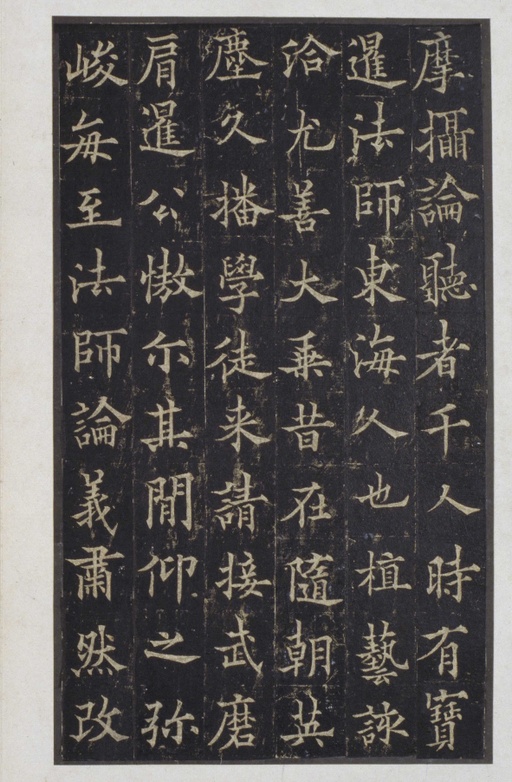 摩攝論聽者千人時有寶
暹法師東海人也植藝該
洽尤善大乗昔在隨朝英
塵久播學徒来請接武磨
肩暹公憿尓其閒仰之弥
峻每至法師論義肅然改